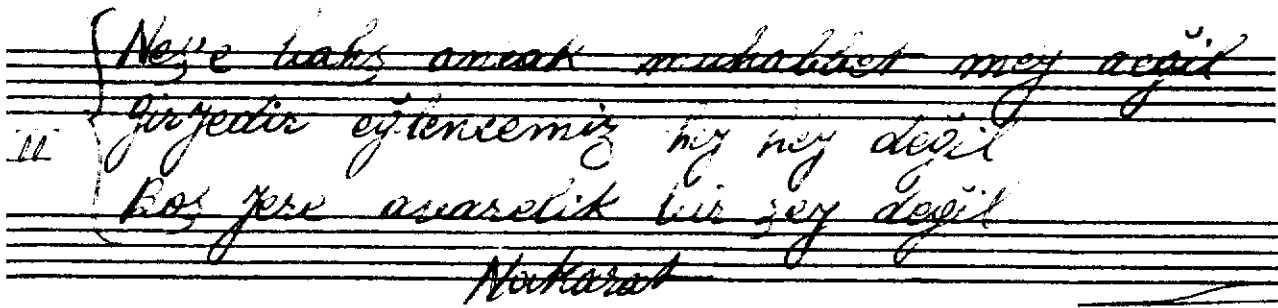 Neş'e bahş ancak muhabbet mey değil
Giryedir eğlencemiz hey hey değil
II
Boş yere avarelik bir şey değil
Nakarat